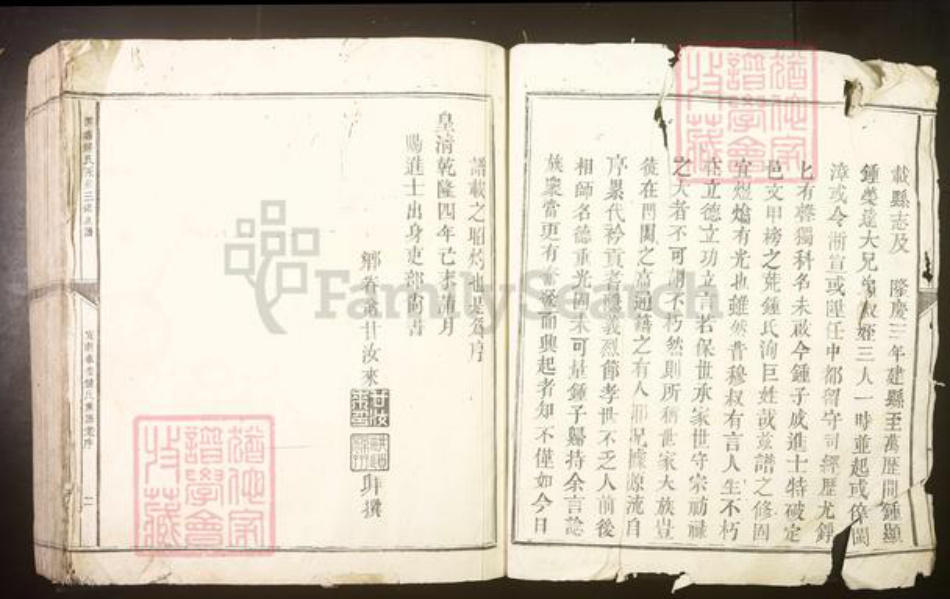 載縣志及 隆慶三年建縣至萬歷間鍾顯
鍾榮達大兄叔姪三人一時並起或倅閩
漳或令浙宣或陞任中都留守司經歷尤錚
匕有聲獨科名未啟今鍾子成進士特破定
邑文甲榜之荒鍾氏洵巨姓哉兹譜之修固
宜熀爚有光也雖然昔穆叔有言人生不朽
在立德立功立言若保世承家世守宗祊祿
之大者不可謂不朽然則所稱世家大族豈
徒在門閥之高通籍之有人耶况據源流自
序累代衿貢者議義烈節孝世不乏人前後
相師名德重光固未可量鍾子歸持余言諗
族衆當更有奮發而興起者知不僅如今日
譜載之昭灼也是為序
皇清乾隆四年己未蒲月
賜進士出身吏部尚書
鄉眷弟甘汝來
拜撰
猶他家
譜學會
收藏
猶他家
譜學會
收藏
FamilySearch
二